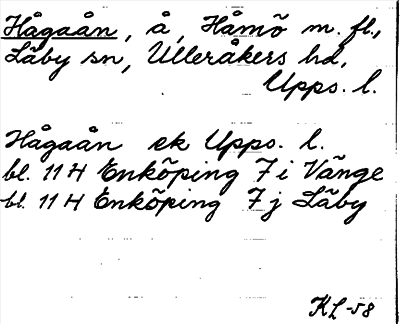 Hågaån, å, Håmö m. fl.,
Läby sn, Ulleråkers hd,
Upps. l.
Hågaån ek Upps. l.
bl. 11 H Enköping 7 i Vänge
bl. 11 H Enköping 7 j Läby
KL -58